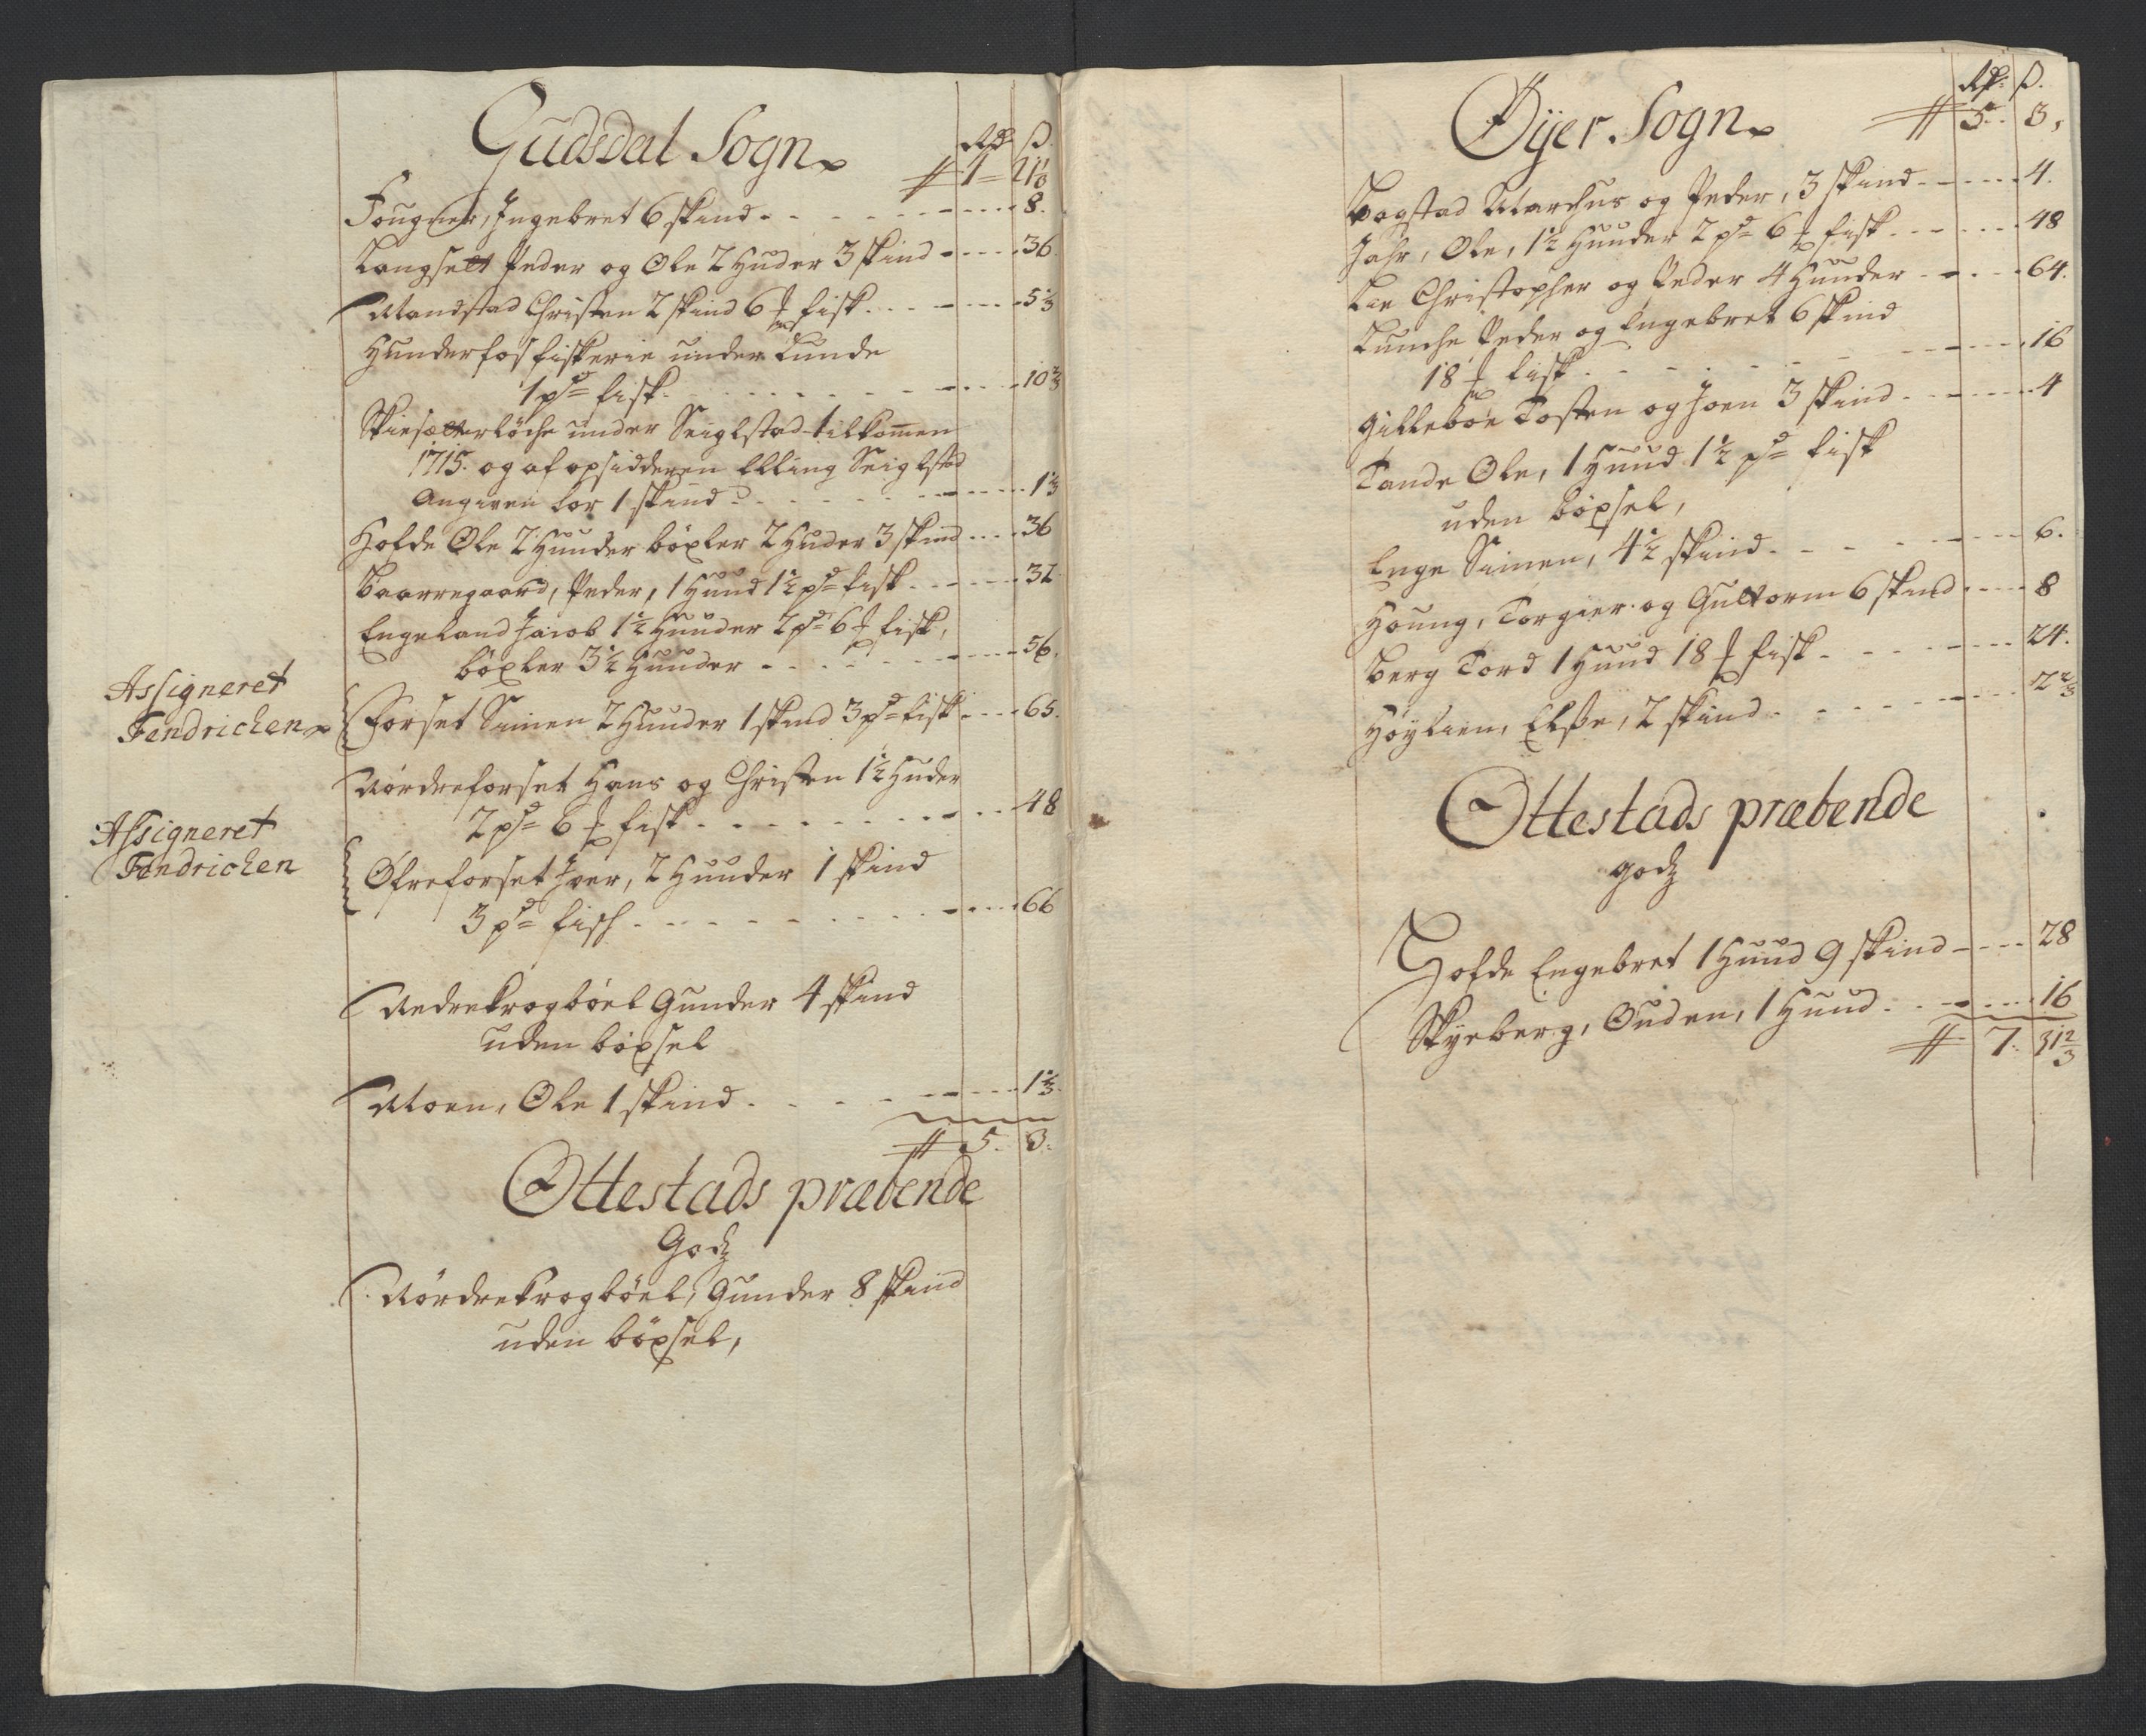 Gudsdal Sogn
Rdr ß.
# 1 - 21 1/3
Fougner, Ingebret 6 skind - - - - 8.
Langsett Peder og Ole 2 Huder 3 skind - - - - 36
Mandstad Christen 2 skind 6 ℔ fisk - - - - 5 1/3
Hunderfos fiskerie under Lunde
1 pd fisk - - - - 10 2/3
Skiesætterløche under Seiglstad tilkommen
1715. og af opsidderen Elling Seiglstad
Angiven for 1 skind - - - - 1 1/3
Hofde Ole 2 Hunder böxler 2 Huder 3 skind - - - 36
Baarregaard, Peder, 1 Huud 1 1/2 pd fisk - - - - 32
Engeland Jacob 1 1/2 Huuder 2 pd 6 ℔ fisk,
böxler 3 1/2 Huuder - - - - 56.
Assigneret
Fendrichen
Forset Simen 2 Huuder 1 skind 3 pd fisk - - - 65.
Nördreforset Hans og Christen 1 1/2 Huder
2 pd 6 ℔ fisk - - - - 48
Assigneret
Fendrichen
Øfreforset Iver, 2 Huuder 1 skind
3 pd fisch - - - - 66
Nedrekrogböel Gunder 4 skind
uden böxsel
Moen, Ole 1 skind - - - - 1 1/3.
# 5. 3.
Ottestads præbende
Godz
Nördrekrogböel, Gunder 8 skind
uden böxsel,
Øyer Sogn
Rdr: ß.
# 5. 3,
Bogstad Marchus og Peder, 3 skind - - - - 4.
Jahr, Ole, 1 1/2 Huuder 2 pd 6 ℔ fisk - - - - 48
Lie Christopher og Peder 4 Huuder - - - - 64.
Lunche Peder og Engebret 6 skind
18 ℔ fisk - - - - 16
Gilleboe Tosten og Joen 3 skind - - - - 4
Tande Ole, 1 Huud 1 1/2 pd fisk
uden böxsel,
Enge Simen, 4 1/2 skind - - - - 6.
Houng, Torgier og Guttorm 6 skind - - - - 8
Berg Tord 1 Huud 18 ℔ fisk - - - - 24.
Höylien, Elße, 2 skind - - - - 2 2/3
Ottestads præbende
godz
Hofde Engebret 1 Huud 9 skind - - - - 28
Skyeberg, Ouden, 1 Huud - - - - 16
# 7. 31 2/3